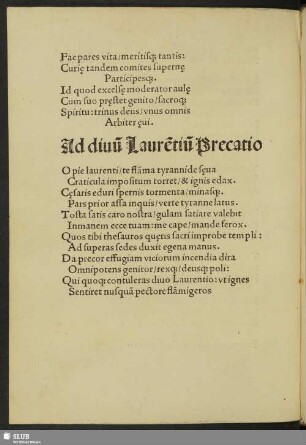 Fac pares vita/meritisq; tantis:
Curię tandem comites supernę
Participesq;.
Id quod excelsę moderator aulę
Cum suo pręstet genito/sacroq;
Spiritu: trinus deus/vnus omnis
Arbiter ęui.
Ad diuū Laurētiū Precatio
O pie laurenti/te flāma tyrannide sęua
Craticula impositum torret/& ignis edax.
Cęsaris eduri spernis tormenta/minasq;.
Pars prior assa inquis/verte tyranne latus.
Tosta satis caro nostra/gulam satiare valebit
Inmanem ecce tuam: me cape/mande ferox.
Quos tibi thesauros quęris sacri improbe templi:
Ad superas sedes duxit egena manus.
Da precor effugiam viciorum incendia dira
Omnipotens genitor/rexq;/deusq; poli:
Qui quoq; contuleras diuo Laurentio: vt ignes
Sentiret nusquā pectore flāmigeros
SLUB